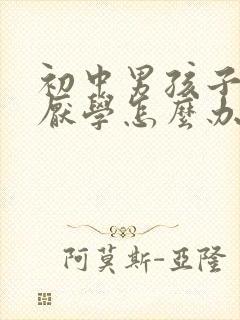 初中男孩子
厭學怎麼办
阿莫斯-亞隆